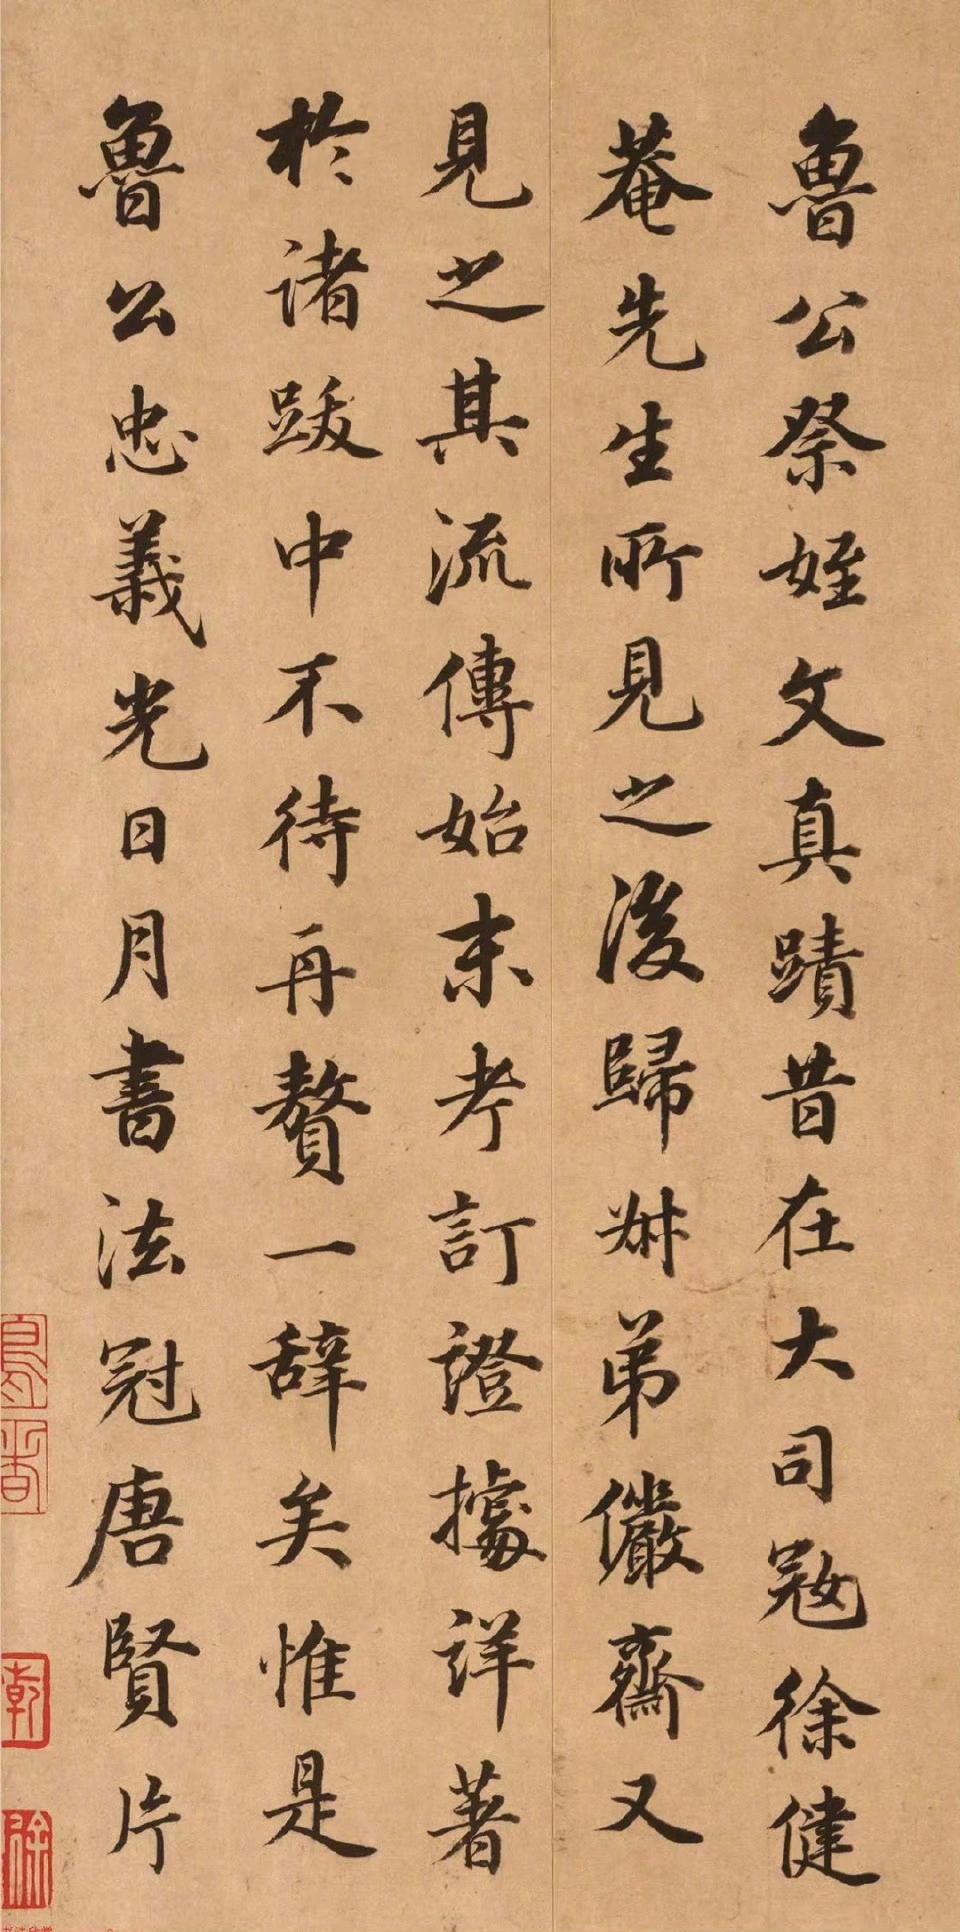 魯公祭姪文真蹟昔在大司宼徐健
菴先生所見之後歸叔弟儼齋又
見之其流傳始末考訂證據詳著
於諸跋中不待再贅一辞矣惟是
魯公忠義光日月書法冠唐賢片